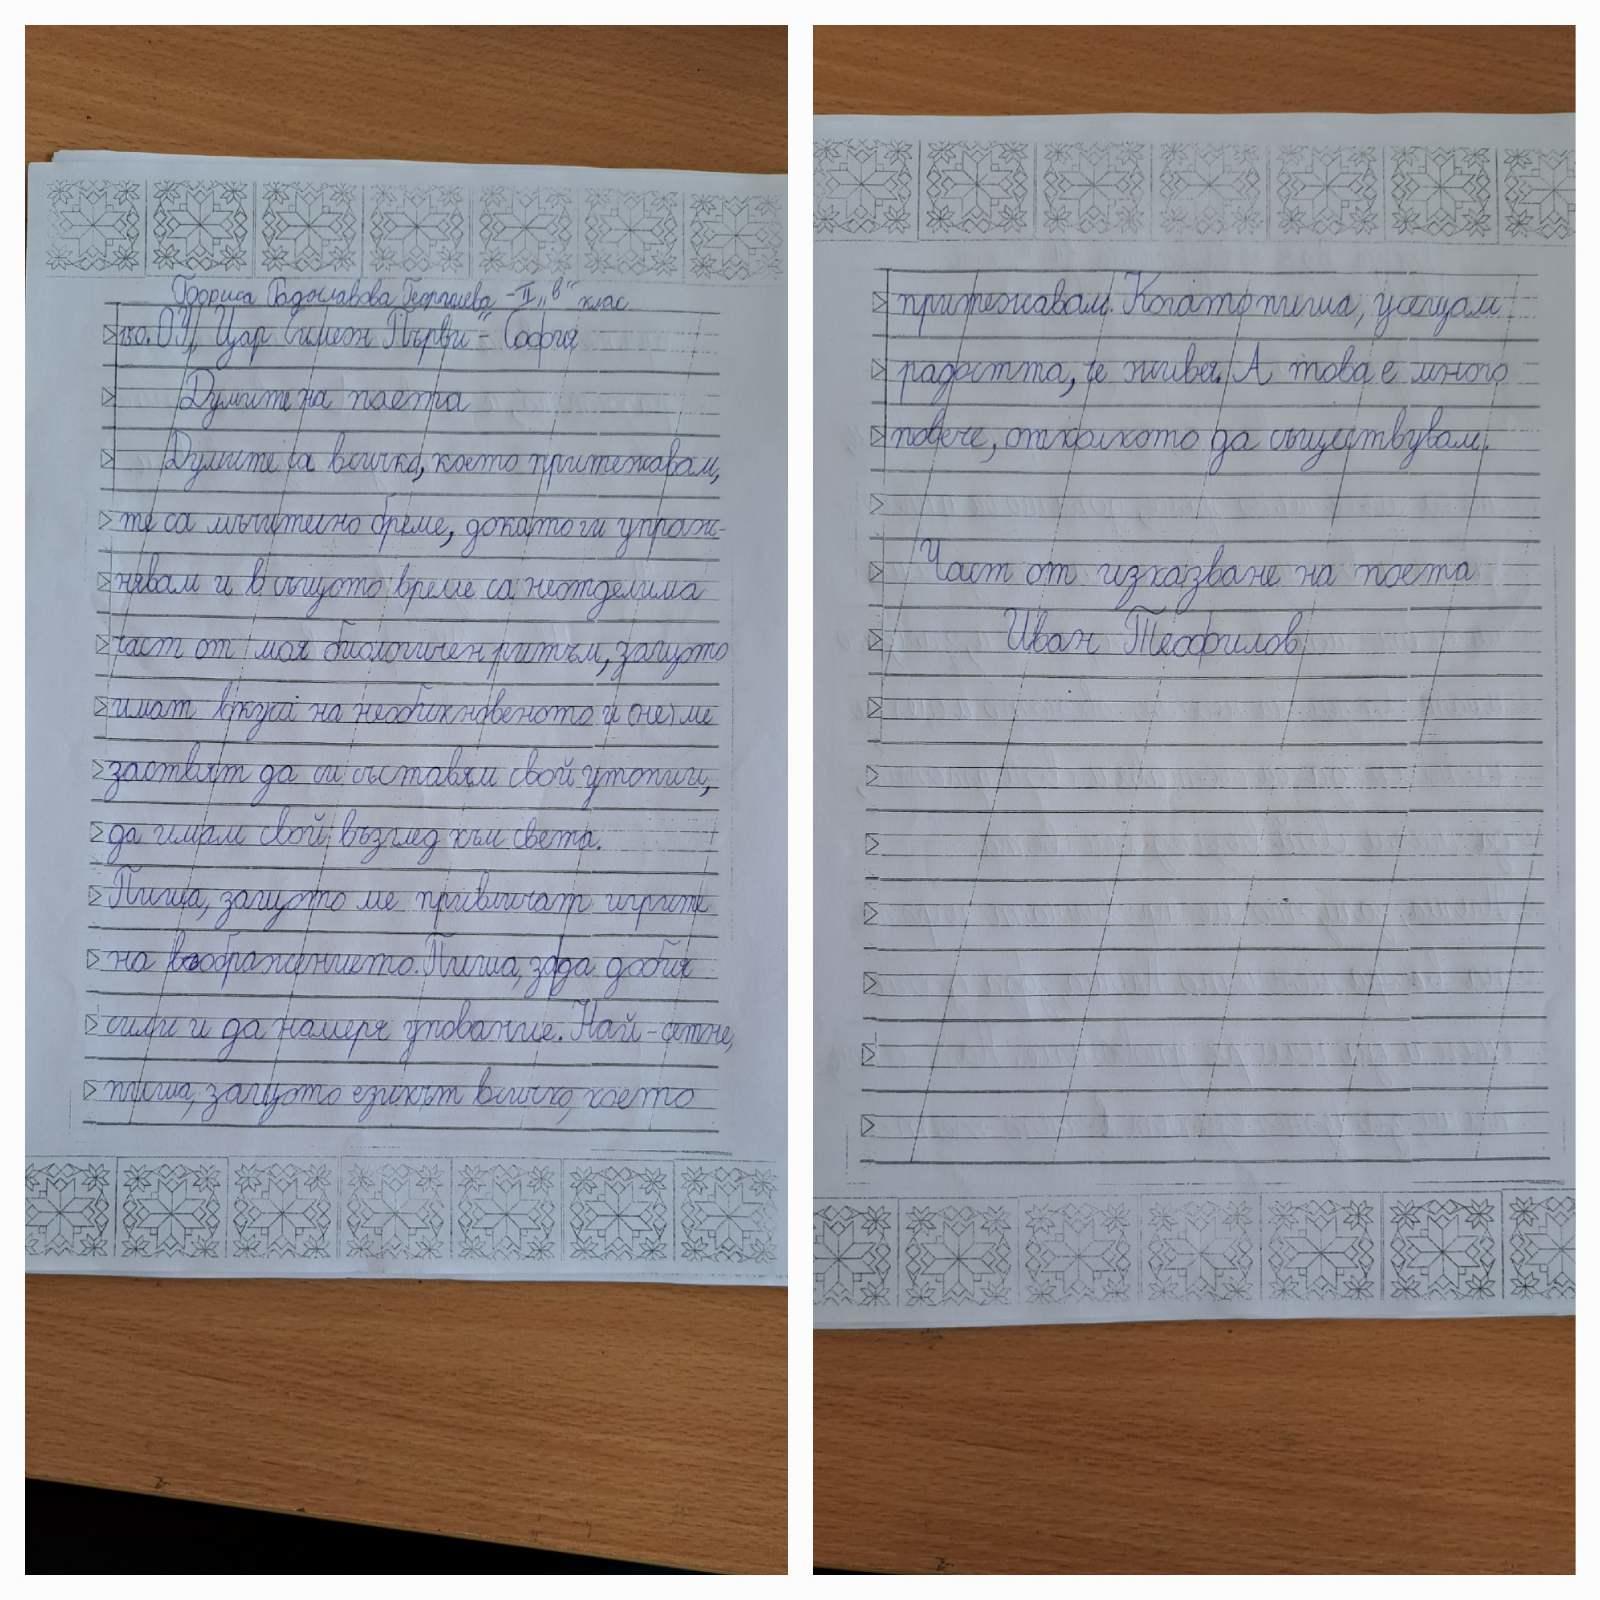 Бориса Радославова Георгиева - II "в" клас
150. ОУ "Цар Симеон Първи" - София
Думите на поета
Думите са всичко, което притежавам,
те са мъчително бреме, докато ги упраж-
нявам и в същото време са неотделима
част от моя биологичен ритъм, защото
имат вкуса на необикновеното и (не) ме
заствят да си съставям свой утопии,
да имам свой възглед към света.
Пиша, защото ме привличат игрите
на въображението. Пиша, за да добия
сили и да намеря упование. Най-сетне,
пиша, защото езикът всичко, което
притежавам. Когато пиша, усещам
радостта, че живея. А това е много
повече, отколкото да съществувам.
Част от изказване на поета
Иван Теофилов